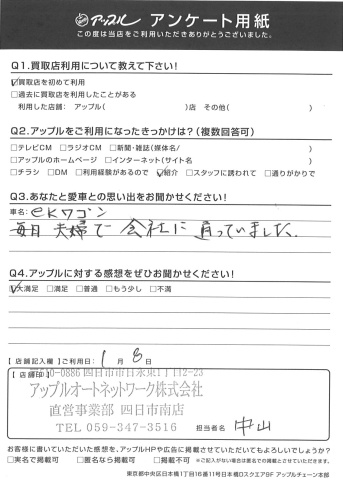 アップル アンケート用紙
この度は当店をご利用いただきありがとうございました。
Q1.買取店利用について教えて下さい!
☑買取店を初めて利用
□過去に買取店を利用したことがある
利用した店舗： アップル( )店 その他( )
Q2.アップルをご利用になったきっかけは?(複数回答可)
□テレビCM □ラジオCM □新聞・雑誌(媒体名/ )
□アップルのホームページ □インターネット(サイト名 )
□チラシ □DM □利用経験があるので ☑紹介 □スタッフに誘われて □通りがかりで
Q3.あなたと愛車との思い出をお聞かせください!
車名： eKワゴン
毎日 夫婦で 会社に 通っていました.
Q4.アップルに対する感想をぜひお聞かせください!
☑大満足 □満足 □普通 □もう少し □不満
【店舗記入欄】ご利用日： 1月 8日
【店舗印】
〒510-0886 四日市市日永東1丁目2-23
アップルオートネットワーク株式会社
直営事業部 四日市南店
TEL 059-347-3516
担当者名 中山
お客様に書いていただいた感想を、アップルHPや広告に掲載させていただいてもよろしいでしょうか?
□実名で掲載可 □匿名なら掲載可 □掲載不可 ※ご記入がない場合は匿名での掲載とさせていただきます。
東京都中央区日本橋1丁目16番11号日本橋Dスクエア9F アップルチェーン本部